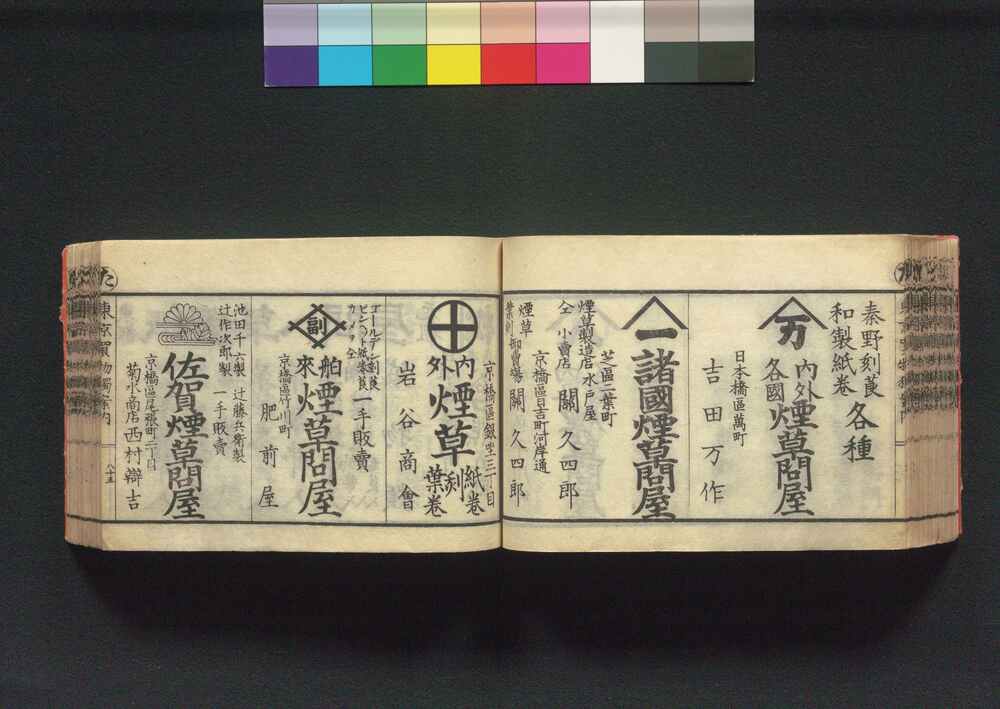 秦野刻莨
和製紙卷
各種
万
内外
各國
煙草問屋
日本橋區萬町
吉田万作
一
諸國煙草問屋
芝區二葉町
煙草製造店水戸屋
仝 小賣店
關久四郎
京橋區日吉町河岸通
煙草
葉刻卸賣場
關久四郎
京橋區銀坐三丁目
内外
煙草
紙卷
刻
葉卷
岩谷商會
ゴールデン刻莨
ピンヘット紙卷莨
カメヲ仝
一手販賣
副
舶來
煙草問屋
京橋區竹川町
肥前屋
池田千六製
辻藤兵衛製
辻作次郎製
一手販賣
佐賀煙草問屋
京橋區尾張町二丁目
菊水商店
西村辯吉
た
八十五